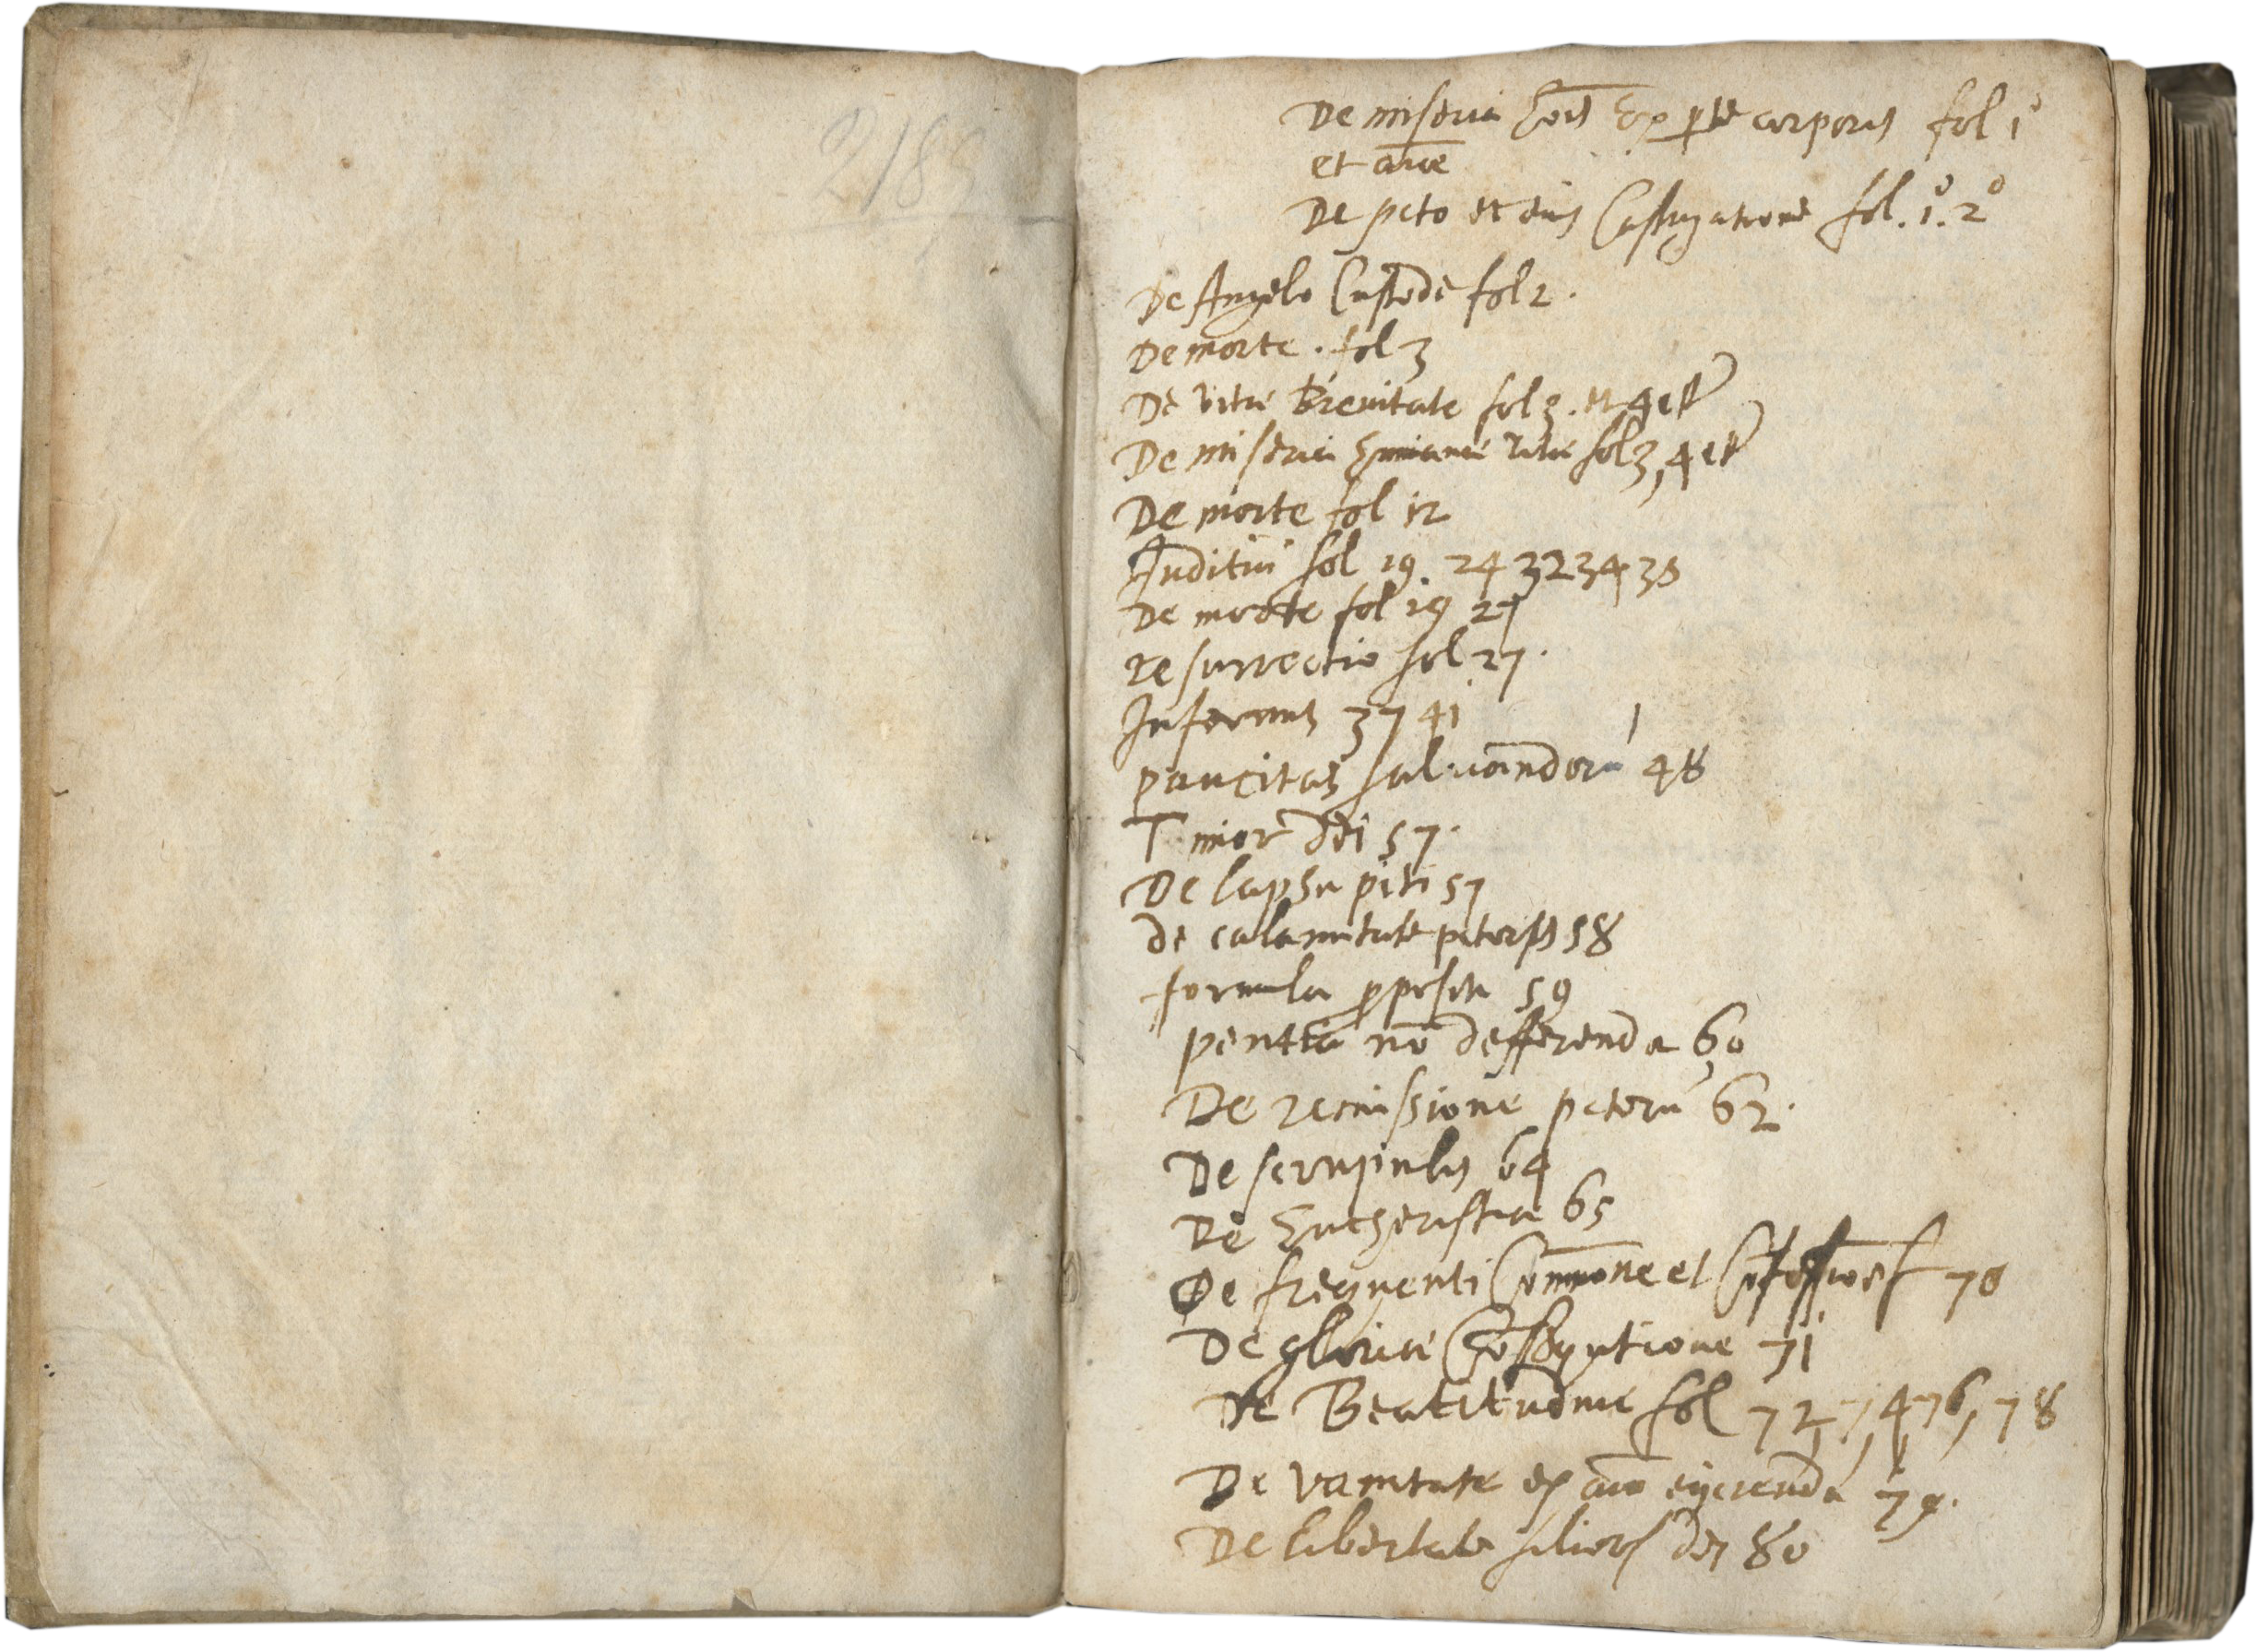 2183
De miseria hōis ex pte corporis fol 1º
et aīae
De pcto et eius Castigatione fol. 1º. 2º
De Angelo Custode fol 2.
De morte . fol 3
De vitae brevitate fol 3. et 4 etc
De miseria humanae vitae fol 3, 4 etc
De morte fol 12
Juditiū fol 19. 24 32 34 38
De morte fol 19 27
resurrectio fol 27.
Infernus 37 41
paucitas salvandorū 48
Timor Dei 57.
De lapsu pcti 57
de calamitate pctoris 58
formula ppositi 59
pentia nō defferenda 60
De remissione pctorū 62.
De scrupulis 64
De Eucheristia 65
De frequenti Commone et Cōfessioe 70
De gloriae 71
De Beatitudine fol 72, 7, 4, 76, 78
De vanitate ex aīo eijcienda 79.
De libertate filior dei 80